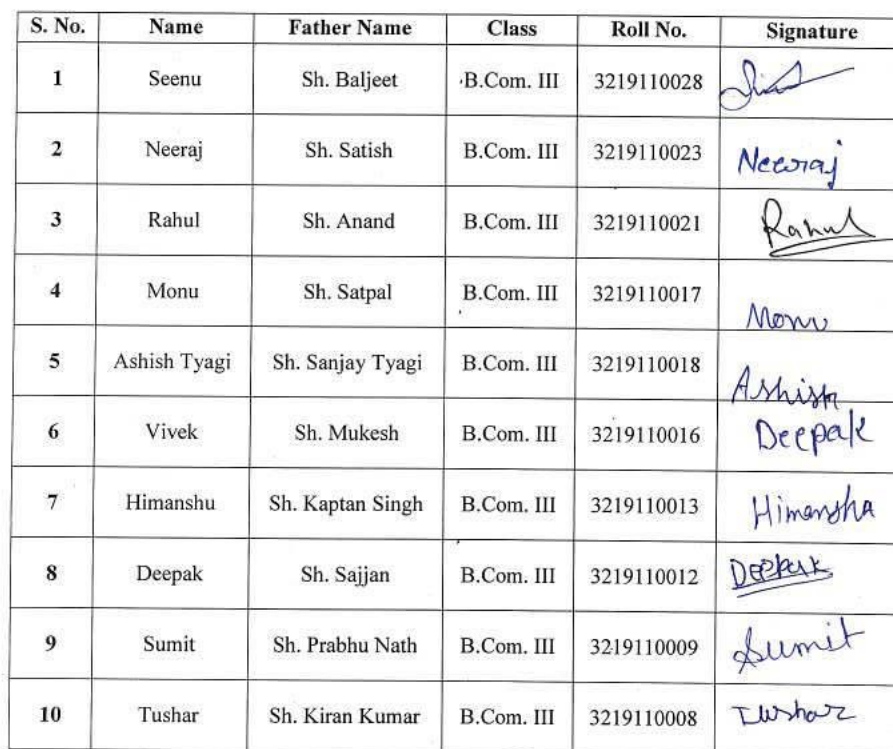 S. No. Name Father Name Class Roll No. Signature
1 Seenu Sh. Baljeet B.Com. III 3219110028
2 Neeraj Sh. Satish B.Com. III 3219110023 Neeraj
3 Rahul Sh. Anand B.Com. III 3219110021 Rahul
4 Monu Sh. Satpal B.Com. III 3219110017 Monu
5 Ashish Tyagi Sh. Sanjay Tyagi B.Com. III 3219110018 Ashish
6 Vivek Sh. Mukesh B.Com. III 3219110016 Deepak
7 Himanshu Sh. Kaptan Singh B.Com. III 3219110013 Himansha
8 Deepak Sh. Sajjan B.Com. III 3219110012 Deepak
9 Sumit Sh. Prabhu Nath B.Com. III 3219110009 Sumit
10 Tushar Sh. Kiran Kumar B.Com. III 3219110008 Tushar